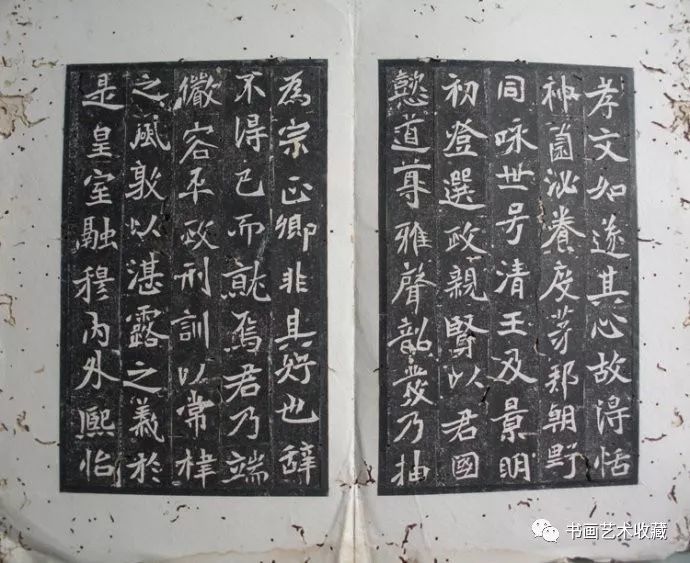 孝文如遂其心故得恬
神薗泌養度茅邦朝野
同咏世号清王及景明
初登選政親賢以君國
懿道尊雅聲韶發乃抽
為宗正卿非其好也辭
不得已而就焉君乃端
儼容平政刑訓以常棣
之風敦以湛露之義於
是皇室融穆內外熙怡
书画艺术收藏